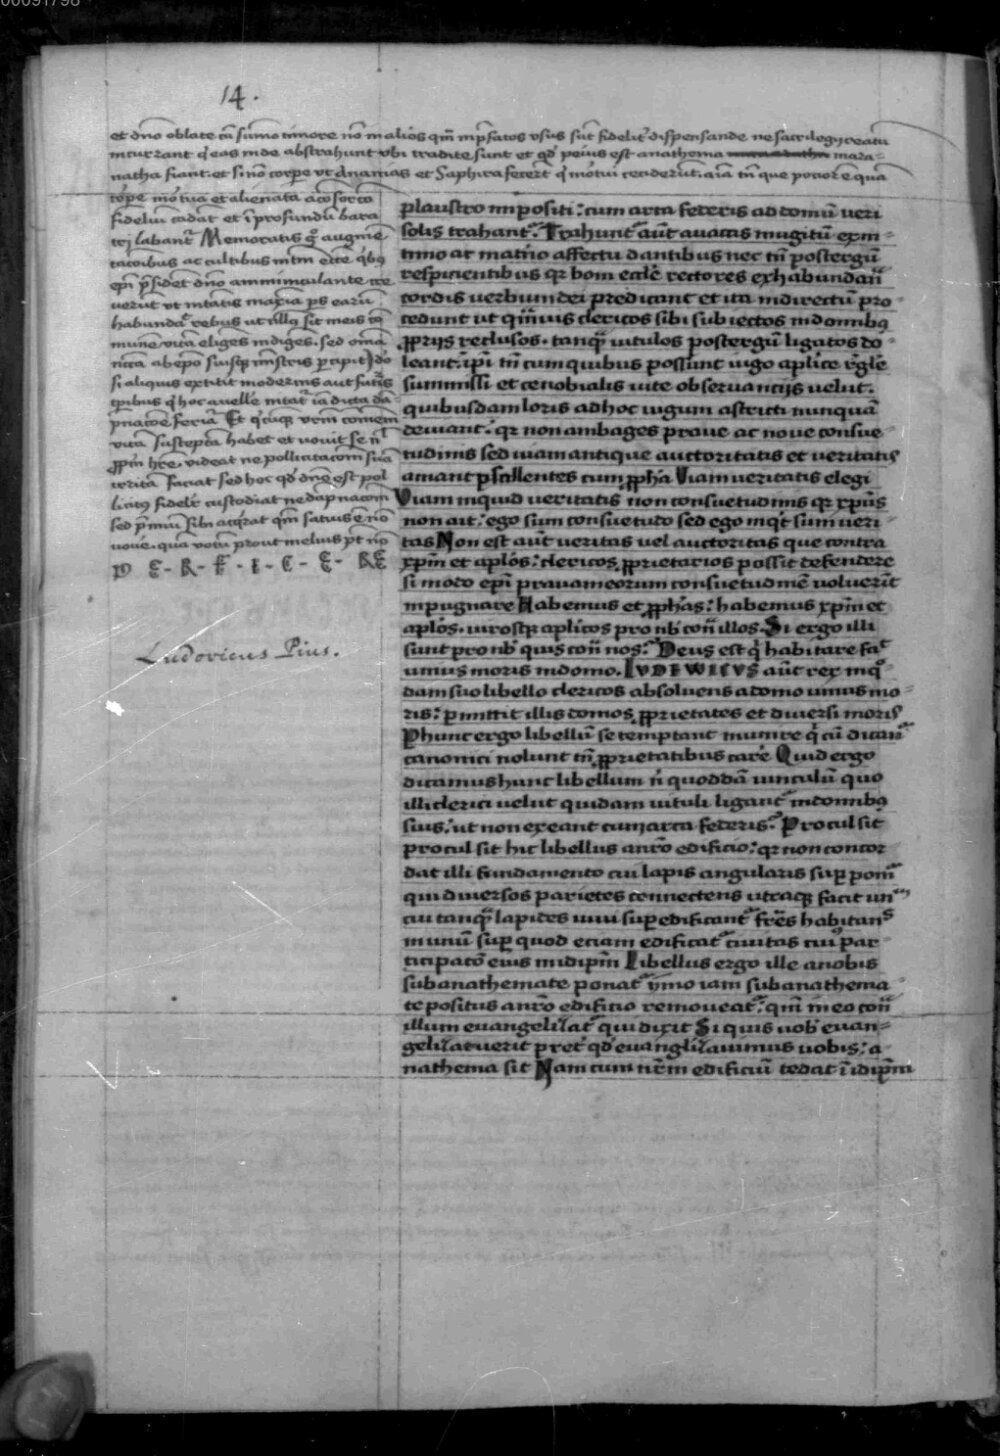 00091798
14.
et dn̄o oblate cū sūmo timore nō in alios qm̄ in p̄fatos vsus sūt fidelit᷑ dispensande ne sacrilegij reatū
incurrant q̇ eas inde abstrahunt vbi tradite sunt et qđ peius est anathema mara-
natha fiant. et si nō corpe vt Ananias et Saphira fecer̄t q̇ motui ceciderūt. aīa tn̄ que pocior e quā
fideliū cadat et ī profundū bara
tri labant᷑ Memoratis g̊ augmē
tacōibus ac cultibus
ep̄i p̄sident dn̄o amminiculante cre
uerūt vt
habundāt᷑ rebus ut illoꝝ sit meis cō
mune vitā eligēs indiges. sed omā
si aliquis extitit modernis aut
tp̄ribus q̇ hoc auelle
vitā susceptā habet et vouit se nl̄
ꝓpm̄ hr̄e. videat ne pollicitacōm suā
irritā faciat sed hoc qđ dn̄o est pol
licitꝰ fidelit᷑ custodiat ne dāpnacōm
sed p̄miū sibi acq̇rat qm̄ satius e nō
vouē. quā votū prout melius p̄t nō
Ludovicus Pius.
plaustro impositi : cum arca federis ad domū ueri
solis trahant᷑. Trahunt᷑ aūt a uaccis mugitū ex in-
timo ac mat᷑no affectu dantibus nec tn̄ postergū
respicientibus qꝛ boni eccl̄e rectores ex habundan̄
cordis uerbum dei predicant et ita in directū pro-
cedunt ut qm̄uis clericos sibi subiectos in domibꝫ
ꝓprijs reclusos. tanqꝫ uitulos postergū ligatos do-
leant. ip̄i tn̄ cum quibus possunt iugo ap̄lice rḡle
summissi et cenobialis uite obseruancijs uelut.
quibusdam loris ad hoc iugum astricti nunquā
deuiant. qꝛ non ambages praue ac noue consue-
tudinis sed uiam antique auctoritatis et ueritatis
amant psallentes cum ꝓpha Uiam ueritatis elegi
Uiam inquid ueritatis non consuetudinis qꝛ xp̄us
non ait. ego sum consuetudo sed ego inq̇t sum ueri-
tas Non est aūt ueritas uel auctoritas que contra
xp̄m et ap̄los. clericos ꝓprietarios possit defendere
si modo ep̄i prauam eorum consuetudinē uoluerīt
inpugnare Habemus et ꝓphās. habemus xp̄m et
ap̄los. uirosqꝫ ap̄licos pro nob᷑ con̄ illos. Si ergo illi
sunt pro nob᷑ quis con̄ nos. Deus est q̇ habitare fac᷑
unius moris in domo. LVDEWICVS aūt rex in quo-
dam suo libello clericos absoluens a domo unius mo-
ris. permittit illis domos ꝓprietates et diuersi moris
Per hunc ergo libellū se temptant munire q̇ cū dicant᷑
canonici nolunt tn̄ ꝓprietatibus carē Quid ergo
dicamus hunc libellum n̄ quoddā uinculū quo
illi clerici uelut quidam uituli ligant᷑ in domibꝫ
suis. ut non exeant cum arca federis. Procul sit
procul sit hic libellus a nr̄o edificio. qꝛ non concor
dat illi fundamento cui lapis angularis sup ponit᷑
qui diuersos parietes connectens utraqꝫ facit unum
cui tanqꝫ lapides uiui sup edificant᷑ fr̄es habitan̄s
in unū sup quod eciam edificat᷑ ciuitas cuiꝰ par-
ticipacō eius in idipm̄ Libellus ergo ille a nobis
sub anathemate ponat᷑ ymo iam sub anathema-
te positus a nr̄o edificio remoueat᷑. qm̄ in eo con̄
illum euangelizat᷑ qui dixit Si quis uob᷑ euan-
gelizauerit pret᷑ qđ euanglizauimus uobis. a-
nathema sit Nam cum nr̄m edificiū tedat ī idipm̄